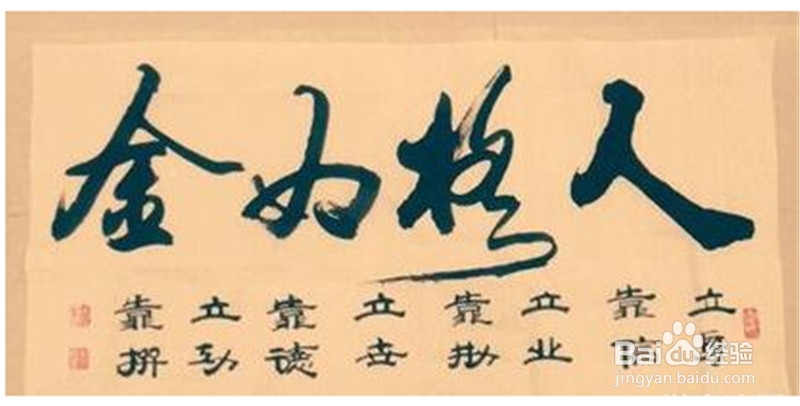 人格如金
立
靠
立业
靠
立世
靠德
立功
靠
Bai 经验
jingyan.baidu.com